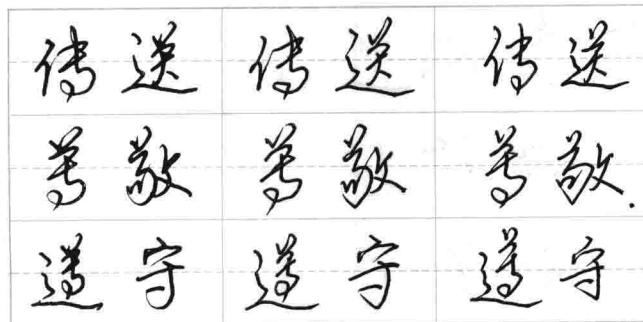 传送 传送 传送
尊敬 尊敬 尊敬.
遵守 遵守 遵守